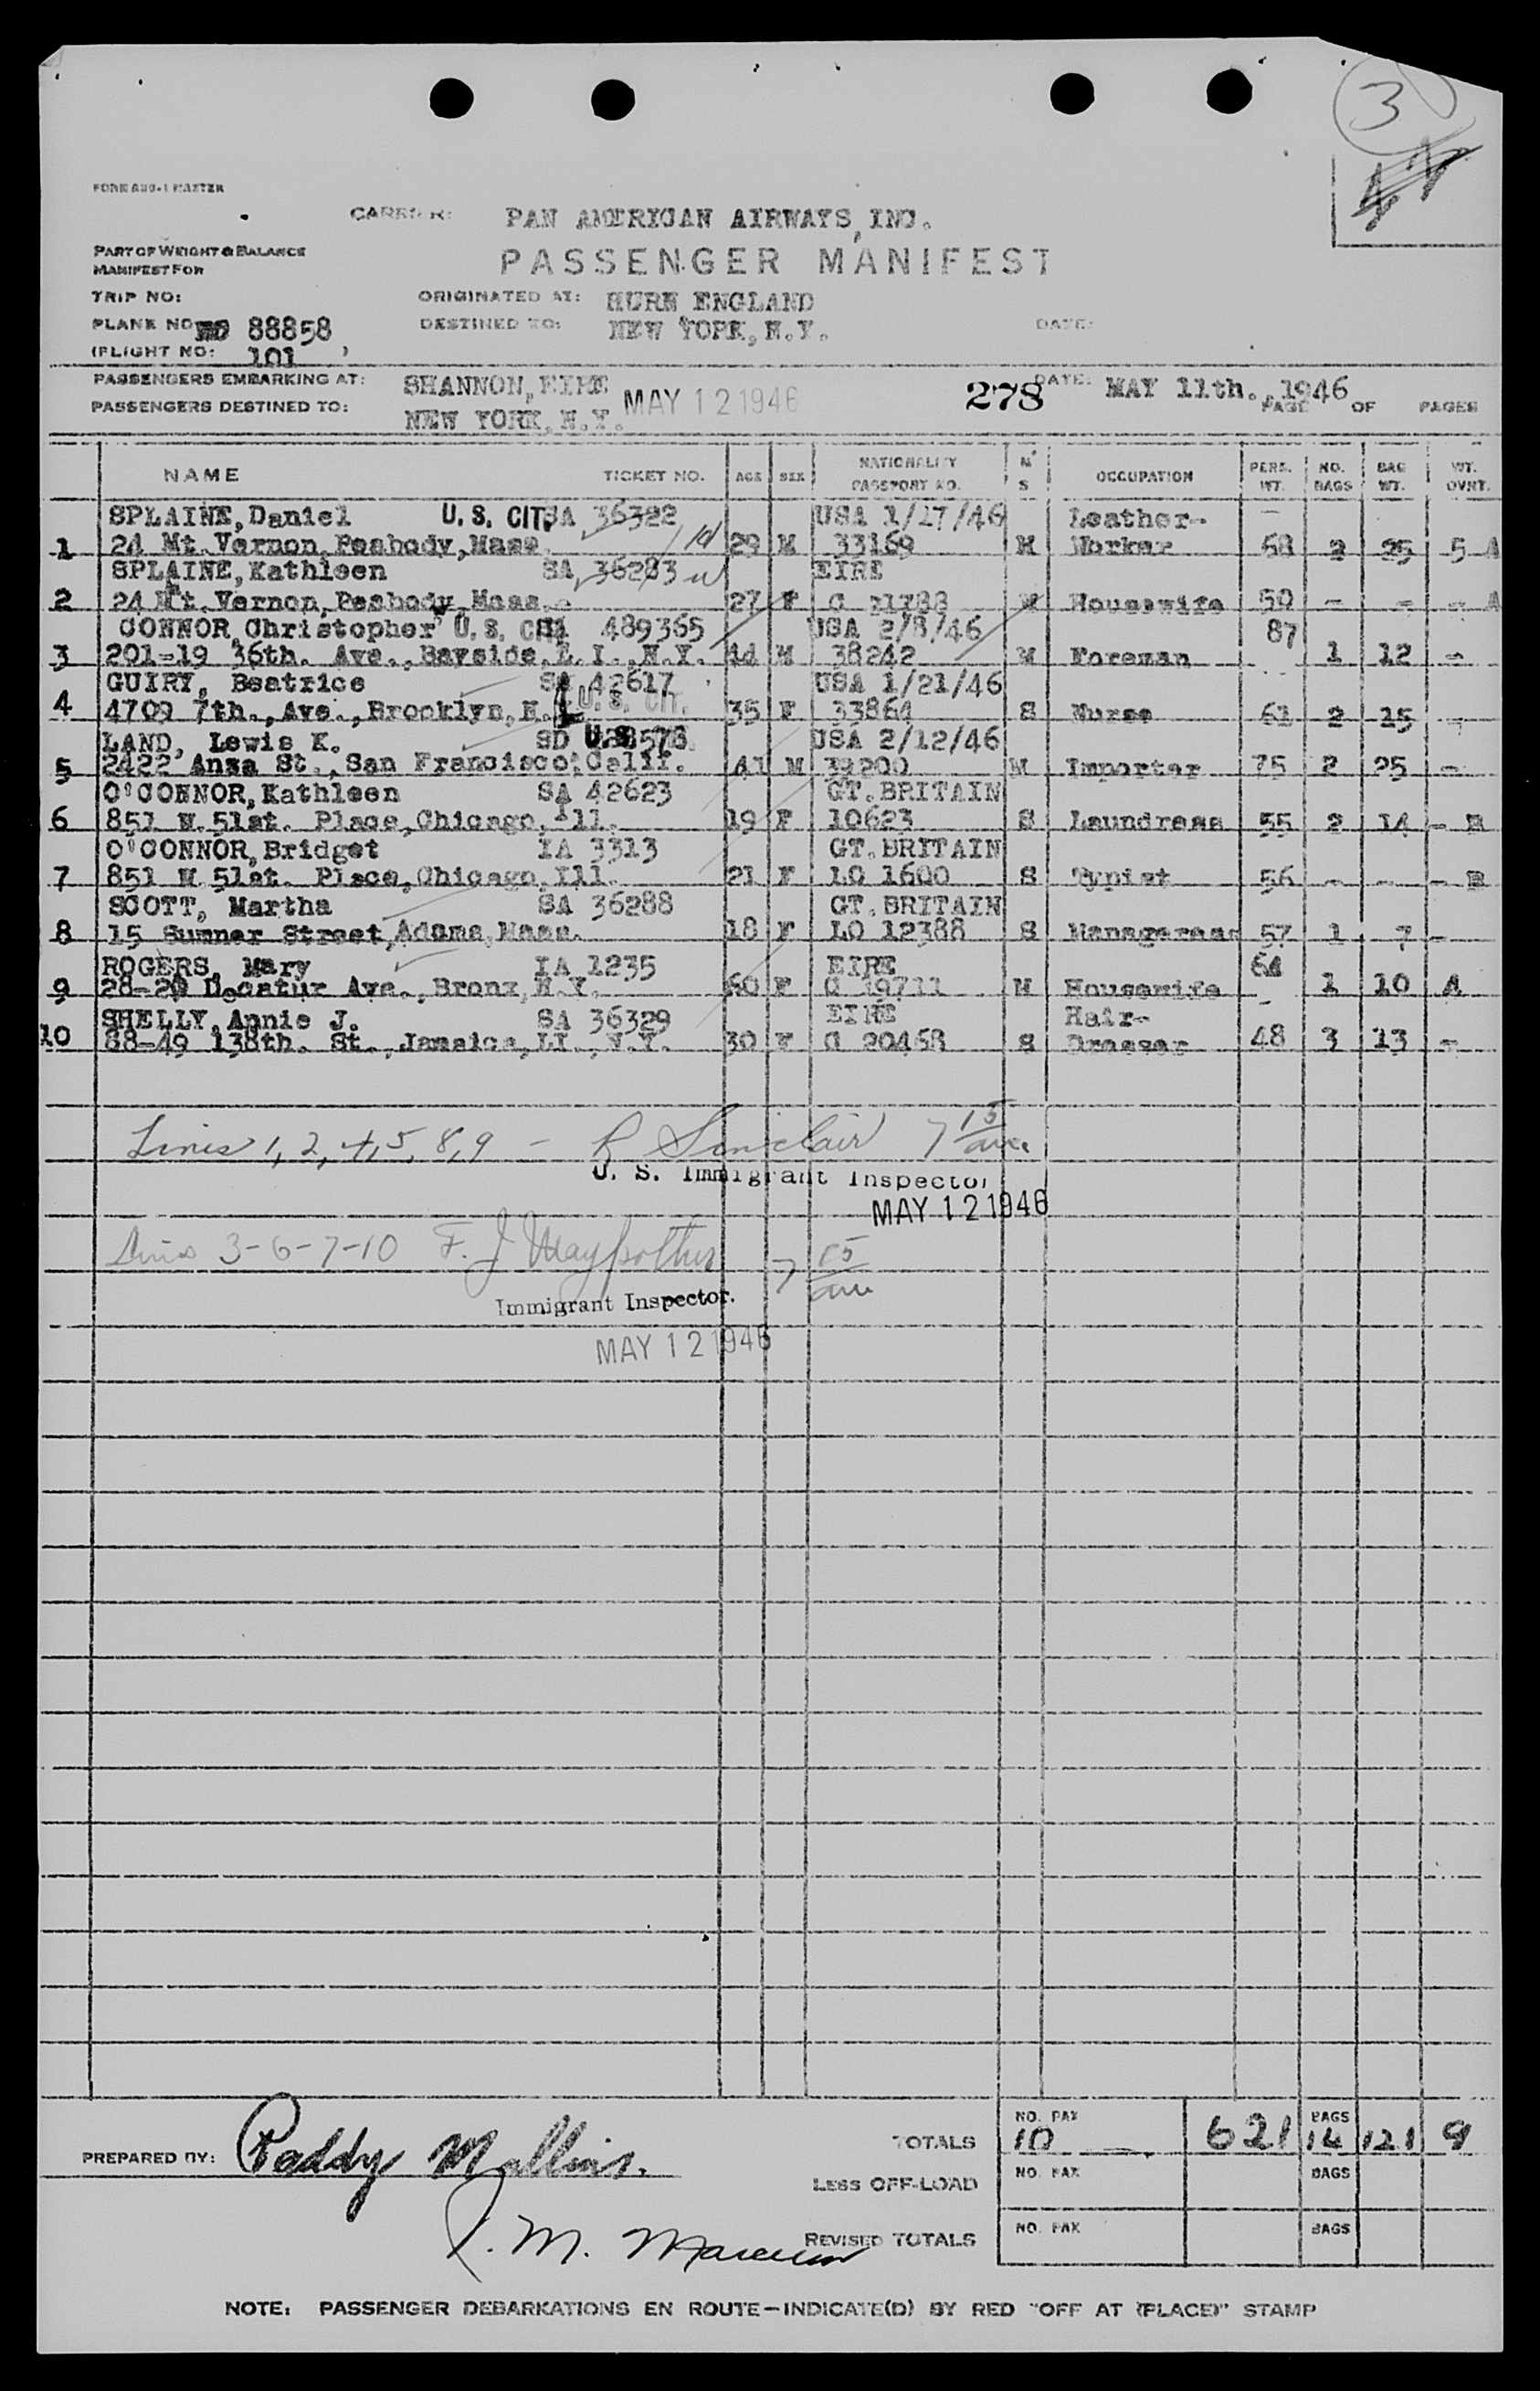 3
FORM
CARRIER: PAN AMERICAN AIRWAYS, INC.
PART OF WEIGHT & BALANCE
MANIFEST FOR
PASSENGER MANIFEST
TRIP NO: ORIGINATED AT: HURN ENGLAND
PLANE NO 88858 DESTINED TO: NEW YORK, N.Y. DATE:
(FLIGHT NO: 101 )
PASSENGERS EMBARKING AT: SHANNON, EIRE MAY 12 1946 278 DATE: MAY 11th., 1946
PASSENGERS DESTINED TO: NEW YORK, N.Y. PAGE OF PAGES
NAME TICKET NO. AGE SEX NATIONALITY PASSPORT NO. M S OCCUPATION PERS. WT. NO. BAGS BAG WT. WT. OVRT.
SPLAINE, Daniel U. S. CIT. SA 36322 USA 1/17/46 Leather-
1 24 Mt. Vernon, Peabody, Mass. 29 M 33169 M Worker 68 2 25 5 A
SPLAINE, Kathleen SA 36283 EIRE
2 24 Mt. Vernon, Peabody, Mass. 27 F C M Housewife 50 - - - A
CONNOR, Christopher U. S. CIT. 489365 USA 2/8/46 87
3 201-19 36th. Ave., Bayside, L.I., N.Y. 44 M 38242 M Foreman 1 12 -
GUIRY, Beatrice SA 42617 USA 1/21/46
4 4709 7th., Ave., Brooklyn, N. U. S. CIT. 35 F 33864 S Nurse 61 2 15 -
LAND, Lewis K. SD USA 2/12/46
5 2422 Anza St., San Francisco, Calif. 41 M 39200 M Importer 75 2 25 -
O'CONNOR, Kathleen SA 42623 GT. BRITAIN
6 851 W. 51st. Place, Chicago, Ill. 19 F 10623 S Laundress 55 2 14 - B
O'CONNOR, Bridget IA 3313 GT. BRITAIN
7 851 W 51st. Place, Chicago, Ill. 21 F LO 1600 S Typist 56 - - - B
SCOTT, Martha SA 36288 GT. BRITAIN
8 15 Sumner Street, Adams, Mass. 18 F LO 12388 S Manageress 57 1 7 -
ROGERS, Mary IA 1235 EIRE 64
9 28-29 Decatur Ave., Bronx, N.Y. 60 F C 19711 M Housewife 1 10 A
SHELLY, Annie J. SA 36329 EIRE Hair-
10 88-49 138th. St., Jamaica, LI., N.Y. 30 F C 20468 S Dresser 48 3 13 -
Lines 1, 2, 4, 5, 8, 9 - R Sinclair 7 15 am
U. S. Immigrant Inspector
MAY 12 1946
Lines 3-6-7-10 F. J 7 15 am
Immigrant Inspector.
MAY 12 1946
PREPARED BY: Paddy Mullins. TOTALS NO. PAX 10 621 BAGS 14 121 9
LESS OFF-LOAD NO. PAX BAGS
J. M. REVISED TOTALS NO. PAX BAGS
NOTE: PASSENGER DEBARKATIONS EN ROUTE—INDICATE(D) BY RED "OFF AT (PLACE)" STAMP